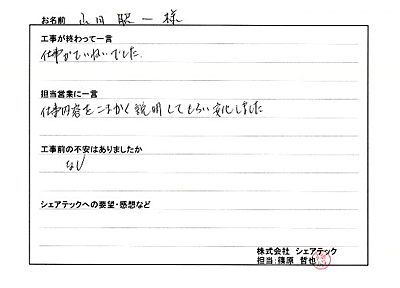 お名前 山田 昭一 様
工事が終わって一言
仕事がていねいでした。
担当営業に一言
仕事内容をこまかく説明してもらい安心しました
工事前の不安はありましたか
なし
シェアテックへの要望・感想など
株式会社 シェアテック
担当:篠原 哲也